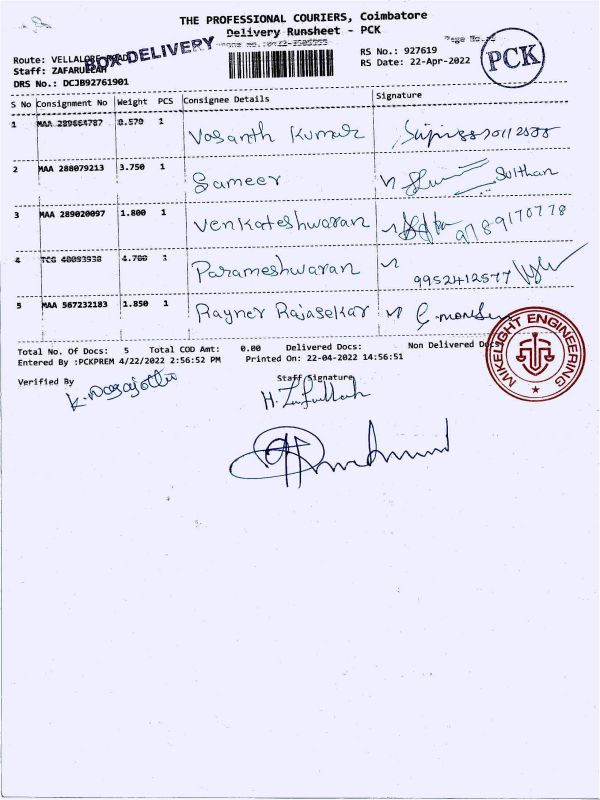 THE PROFESSIONAL COURIERS, Coimbatore
Delivery Runsheet - PCK
Route: VELLALORE ROAD
BOX DELIVERY
RS No.: 927619
PCK
Staff: ZAFARULLAH
RS Date: 22-Apr-2022
DRS No.: DCJB92761901
S No Consignment No Weight PCS Consignee Details Signature
1 MAA 289664787 0.570 1 Vasanth Kumar
2 MAA 288079213 3.750 1 Sameer Sulthan
3 MAA 289020097 1.800 1 Venkateshwaran 9789170778
4 TCG 40093938 4.700 1 Parameshwaran 9952412577
5 MAA 567232183 1.850 1 Rayner Rajasekar
Total No. Of Docs: 5 Total COD Amt: 0.00 Delivered Docs: Non Delivered Docs:
Entered By :PCKPREM 4/22/2022 2:56:52 PM Printed On: 22-04-2022 14:56:51
MIKELIGHT ENGINEERING
Verified By Staff Signature